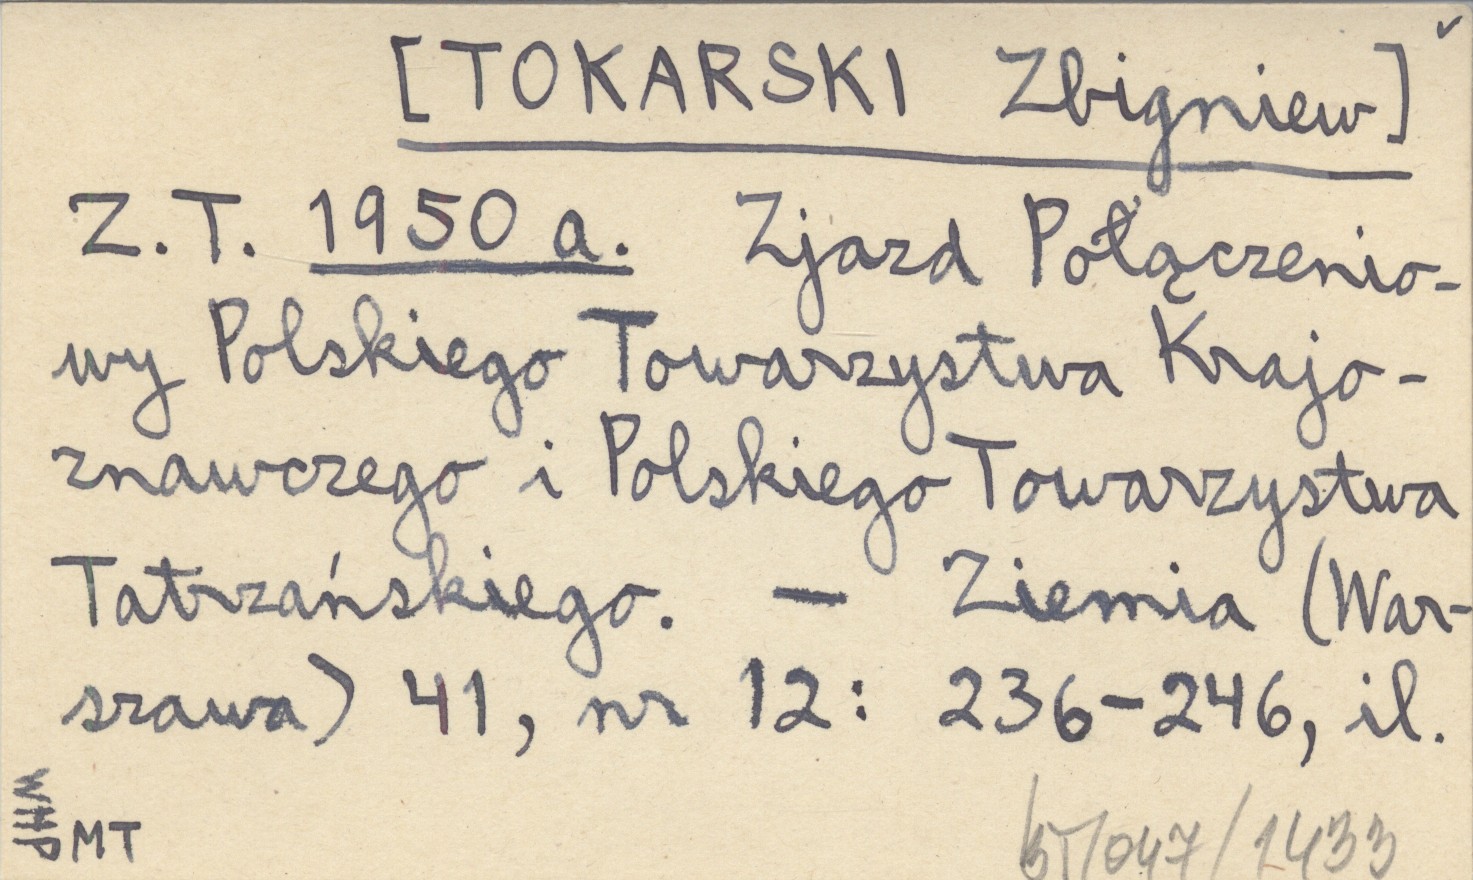 [TOKARSKI Zbigniew]
Z.T. 1950 a. Zjazd Połączenio-
wy Polskiego Towarzystwa Krajo-
znawczego i Polskiego Towarzystwa
Tatrzańskiego. — Ziemia (War-
szawa) 41, nr 12: 236-246, il.
WHP
MT
/047/1433